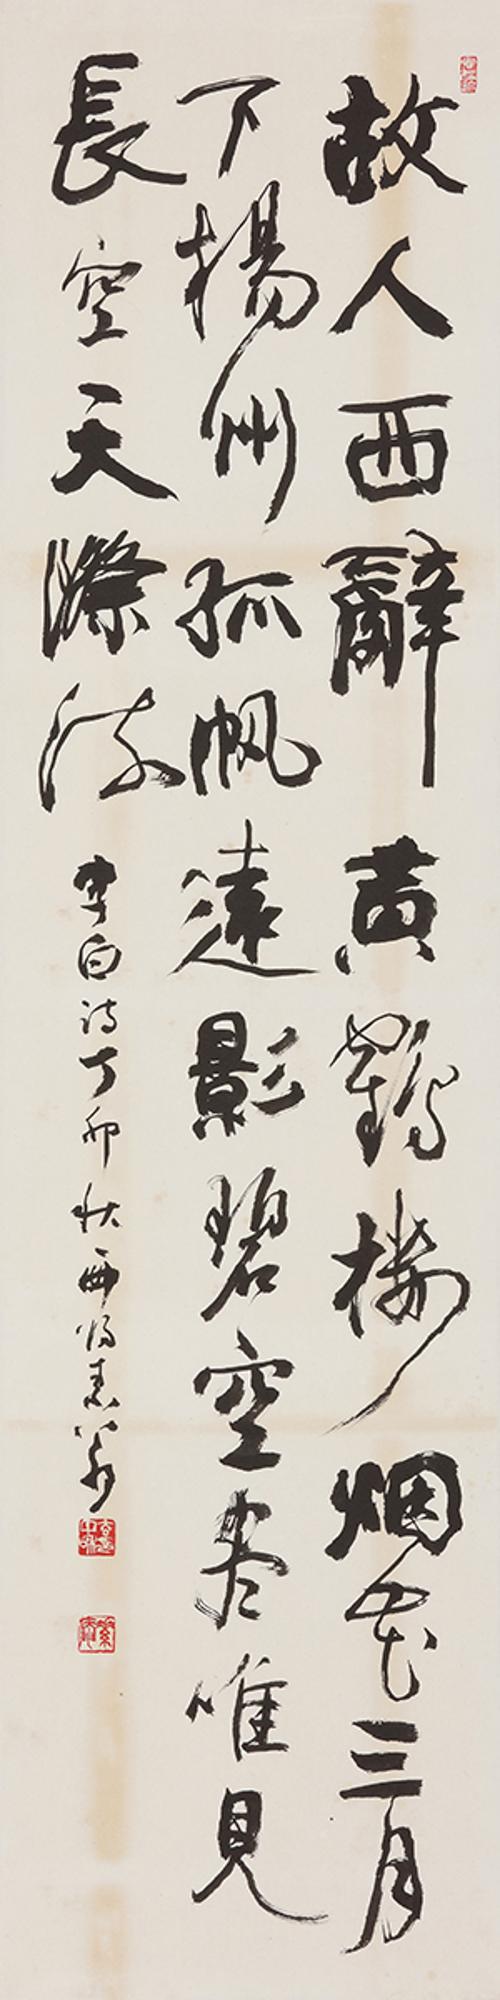 故人西辭黄鶴楼烟花三月
下揚州孤帆遠影碧空尽唯見
長空天際流李白诗丁卯秋